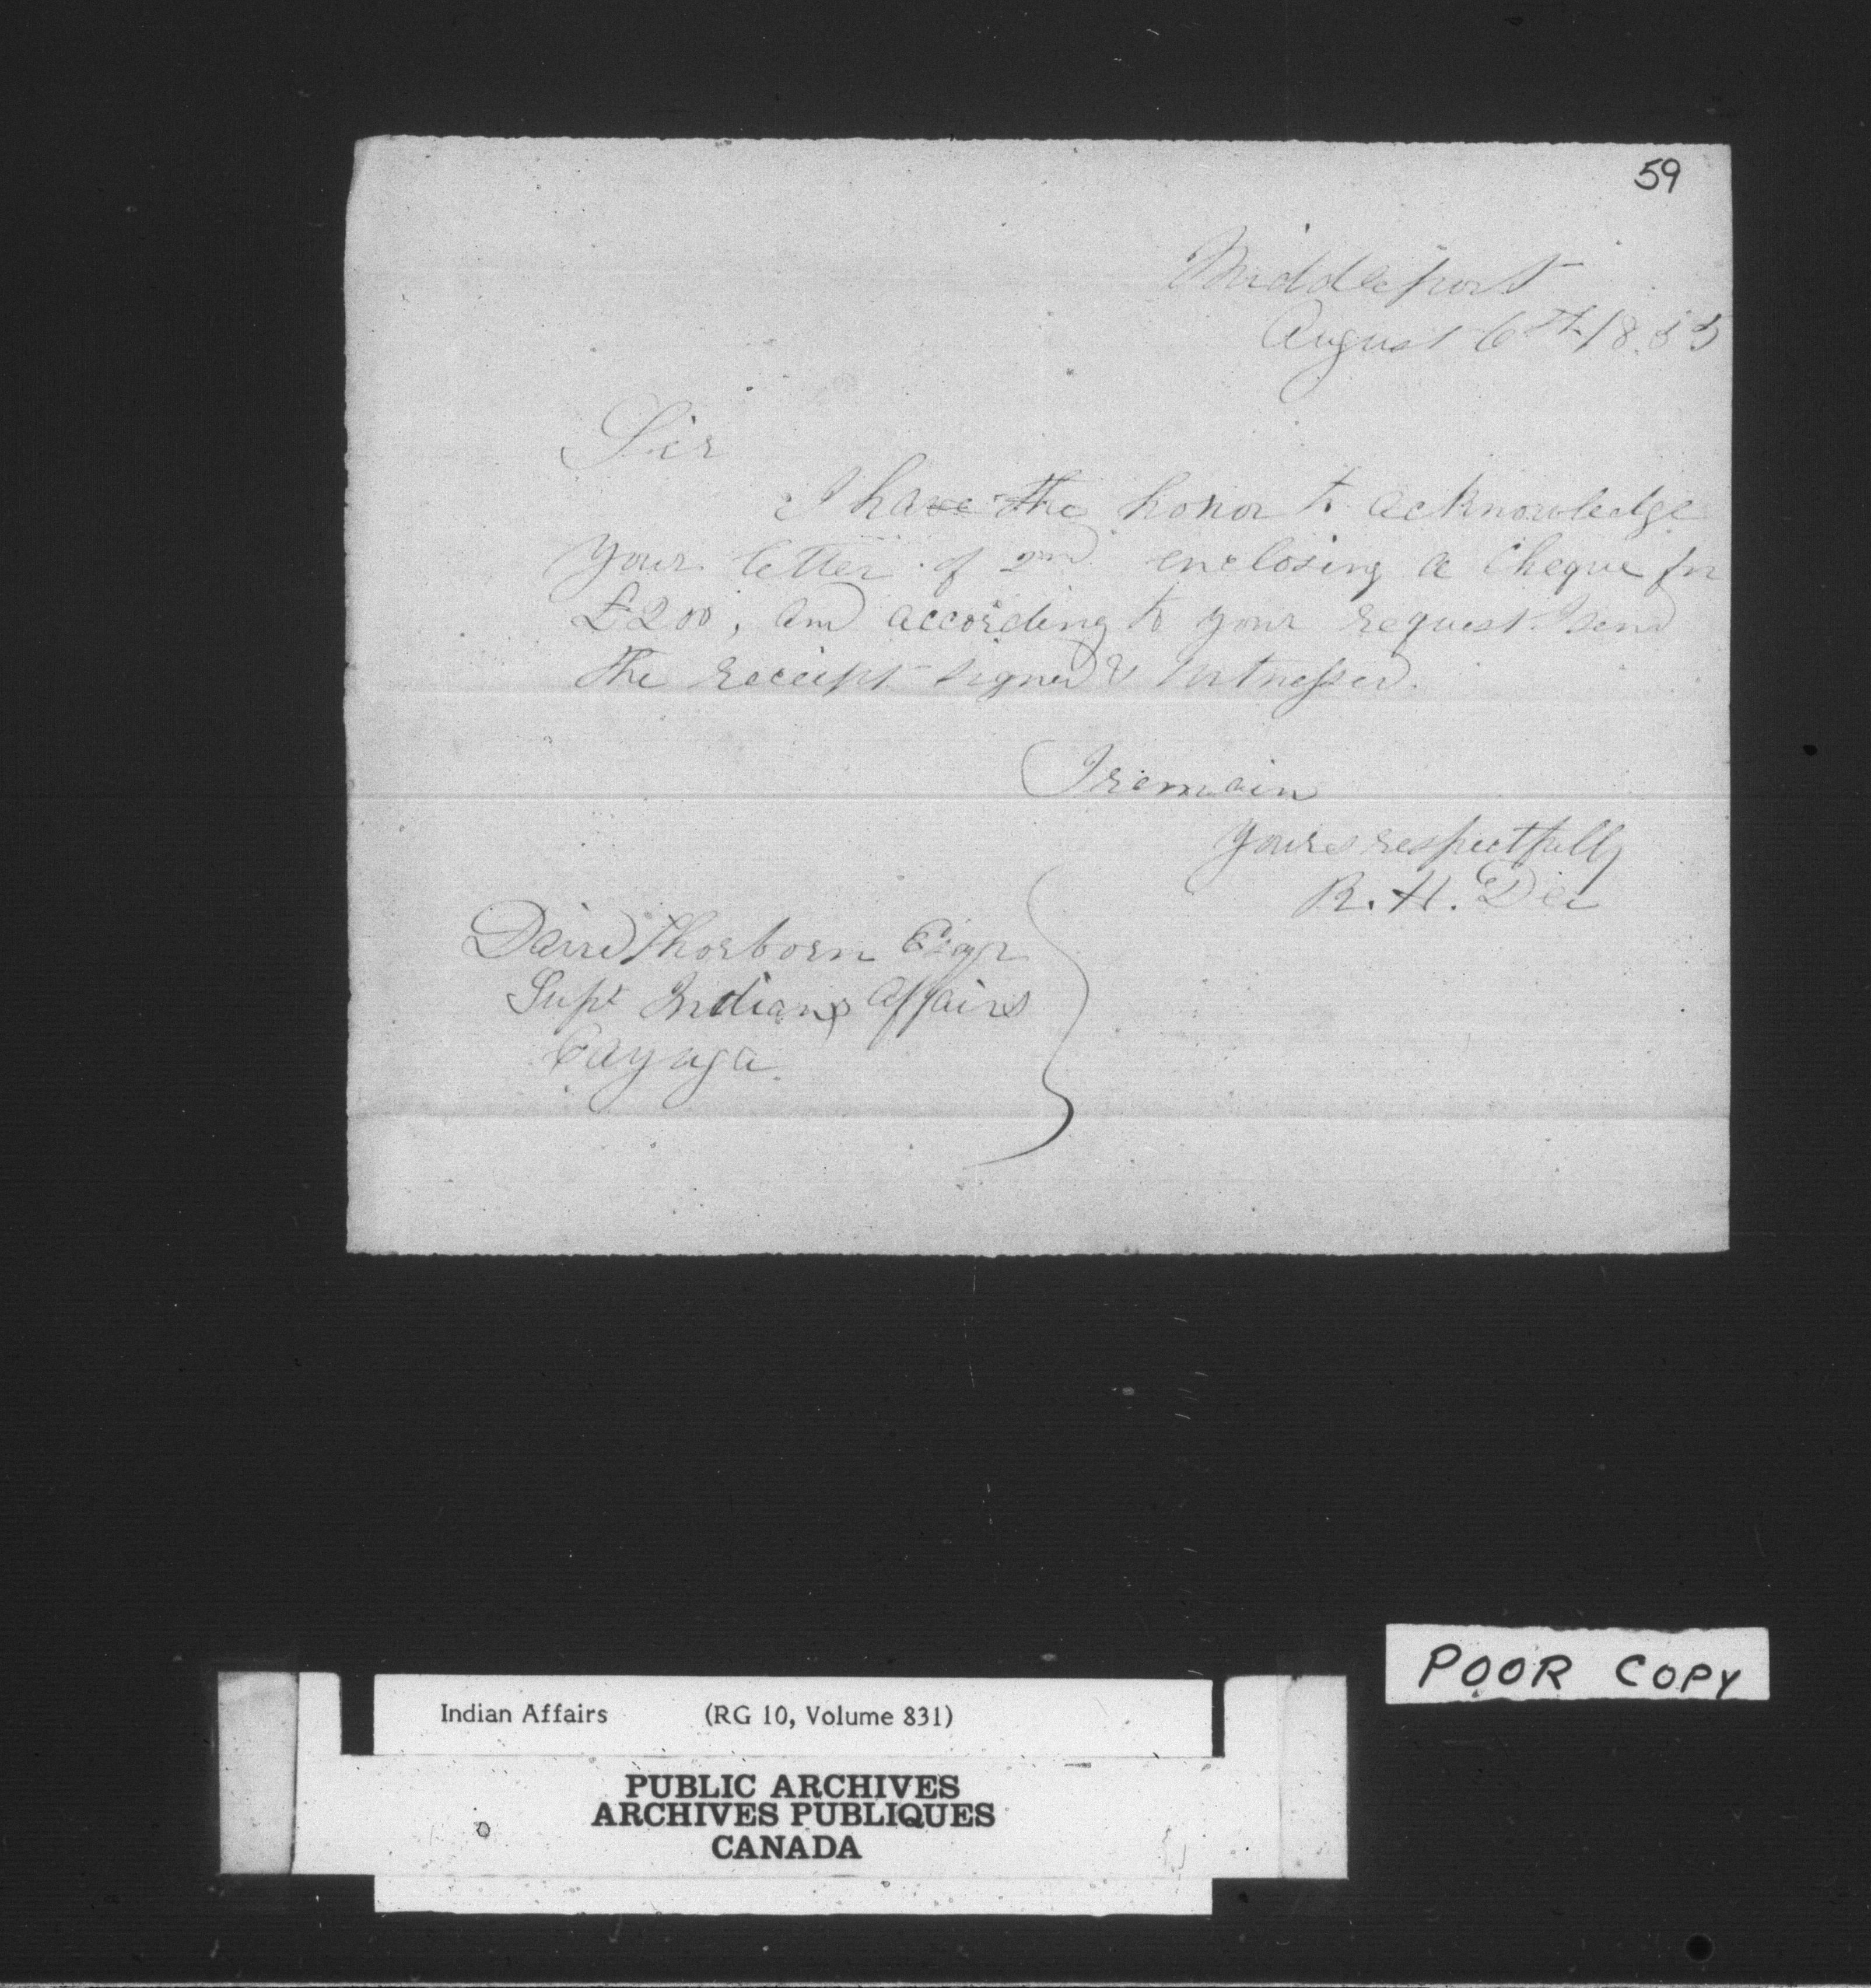 59
Middleport
August 6th 1855
Sir
I have the honor to acknowledge
your letter of 2nd enclosing a Cheque for
£200, and according to your request I send
the receipt signed & witnessed.
I remain
Yours respectfully
R. H. Dee
David Thorborn Esqr
Supt Indians Affairs
Cayuga
POOR COPY
Indian Affairs (RG 10, Volume 831)
PUBLIC ARCHIVES
ARCHIVES PUBLIQUES
CANADA